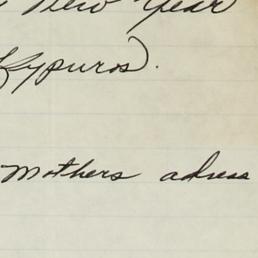 New Year
Kypuros.
Mothers adress